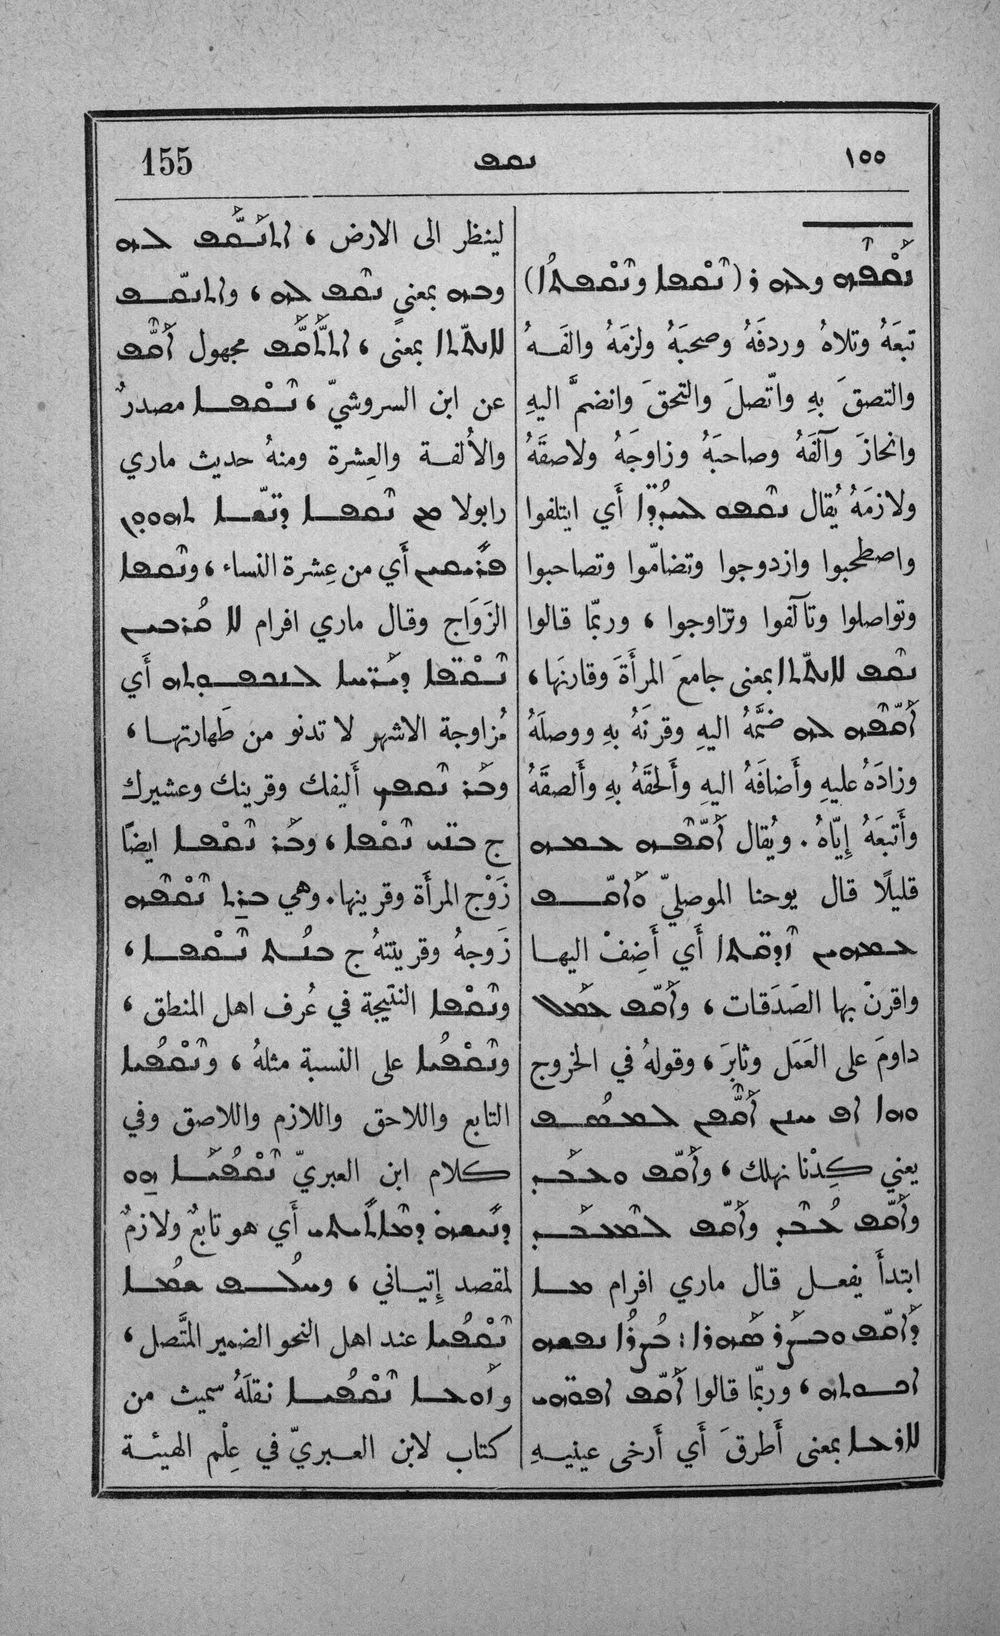 ١٥٥ ܢܩܦ 155
ܢܩܦܗ ܘܠܗ ܪ (ܢܩܦܐ ܘܢܩܦܬܐ)
تبعَهُ وتلاهُ وردفَهُ وصحبَهُ ولزمَهُ والفَـهُ
والتصقَ بهِ واتّصلَ والتحقَ وانضمَّ اليهِ
وانحازَ وآلفَهُ وصاحبَهُ وزاوجَهُ ولاصقَهُ
ولازمَهُ يُقال ܢܩܦܘ ܠܚܕܕܐ أَي ايتلفوا
واصطحبوا وازدوجوا وتضامّوا وتصاحبوا
وتواصلوا وتآلفوا وتزاوجوا ، وربّما قالوا
ܢܩܦ ܠܐܢܬܬܐ بمعنى جامعَ المرأَةَ وقارنَها ،
ܐܩܦܗ ܠܗ ضمَّهُ اليهِ وقرنَهُ بهِ ووصلَهُ
وزادَهُ عليهِ وأَضافَهُ اليهِ وأَلحقَهُ بهِ وأَلصقَهُ
وأَتبعَهُ إِيّاهُ . ويُقال ܐܩܦܗ ܥܡܗ
قليلًا قال يوحنا الموصليّ ܘܐܩܦ
ܥܡܗܝܢ ܙܕܩܬܐ أَي أَضِفْ اليها
واقرنْ بها الصَدَقات ، وܐܩܦ ܥܡܠܐ
داومَ على العَمَل وثابرَ ، وقولهُ في الخروج
ܗܘܐ ܐܦ ܚܢܢ ܐܩܦܢ ܠܡܣܦ
يعني كِدْنا نهلك ، وܐܩܦ ܘܥܒܕ
وܐܩܦ ܥܒܕ وܐܩܦ ܠܡܥܒܕ
ابتدأَ يفعل قال ماري افرام ܡܐ
ܕܐܩܦ ܘܥܨܪ ܣܗܪܐ : ܥܨܪܐ ܢܦܫܗ
ܐܒܗܬܗ ، وربّما قالوا ܐܩܦ ܐܦܘܗܝ
ܠܐܪܥܐ بمعنى أَطرقَ أَي أَرخى عينيهِ
لينظر الى الارض ، ܐܬܢܩܦ ܠܗ
ܘܒܗ بمعنى ܢܩܦ ܠܗ ، وܐܬܢܩܦ
ܠܐܢܬܬܐ بمعنى ، ܐܬܬܩܦ مجهول ܐܩܦ
عن ابن السروشيّ ، ܢܩܦܐ مصدرٌ
والأُلفة والعِشرة ومنهُ حديث ماري
رابولا ܡܢ ܢܩܦܐ ܕܢܫܐ ܬܗܘܘܢ
ܦܪܝܫܝܢ أَي من عِشرة النساء ، وܢܩܦܐ
الزَوَاج وقال ماري افرام ܠܐ ܩܪܒܝܢ
ܢܩܦܐ ܕܝܪܚܐ ܠܢܟܦܘܬܗ أَي
مُزاوجة الاشهر لا تدنو من طَهارتها ،
وܒܪ ܢܩܦܟ أَليفك وقرينك وعشيرك
ج ܒܢܝ ܢܩܦܐ ، وܒܪ ܢܩܦܐ ايضًا
زَوْج المرأَة وقرينها. وهي ܒܪܬ ܢܩܦܗ
زَوجهُ وقرينتهُ ج ܒܢܬ ܢܩܦܐ ،
وܢܩܦܐ النتيجة في عُرف اهل المنطق ،
وܢܩܦܝܐ على النسبة مثلهُ ، وܢܩܘܦܐ
التابع واللاحق واللازم واللاصق وفي
كلام ابن العبريّ ܢܩܘܦܐ ܗܘ
ܕܢܝܫܗ ܕܡܐܬܝܬܝ أَي هو تابعٌ ولازمٌ
لمقصد إِتياني ، وܚܠܦ ܫܡܐ
ܢܩܘܦܐ عند اهل النحو الضمير المتَّصل ،
وܙܘܥܐ ܢܩܘܦܐ نقلَهُ سميث من
كتاب لابن العبريّ في عِلْم الهيئة